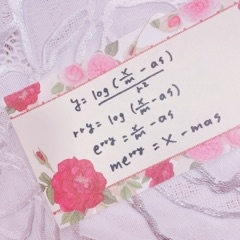 y = log(x/m - as)/r²
rry = log(x/m - as)
e^rry = x/m - as
me^rry = x - mas